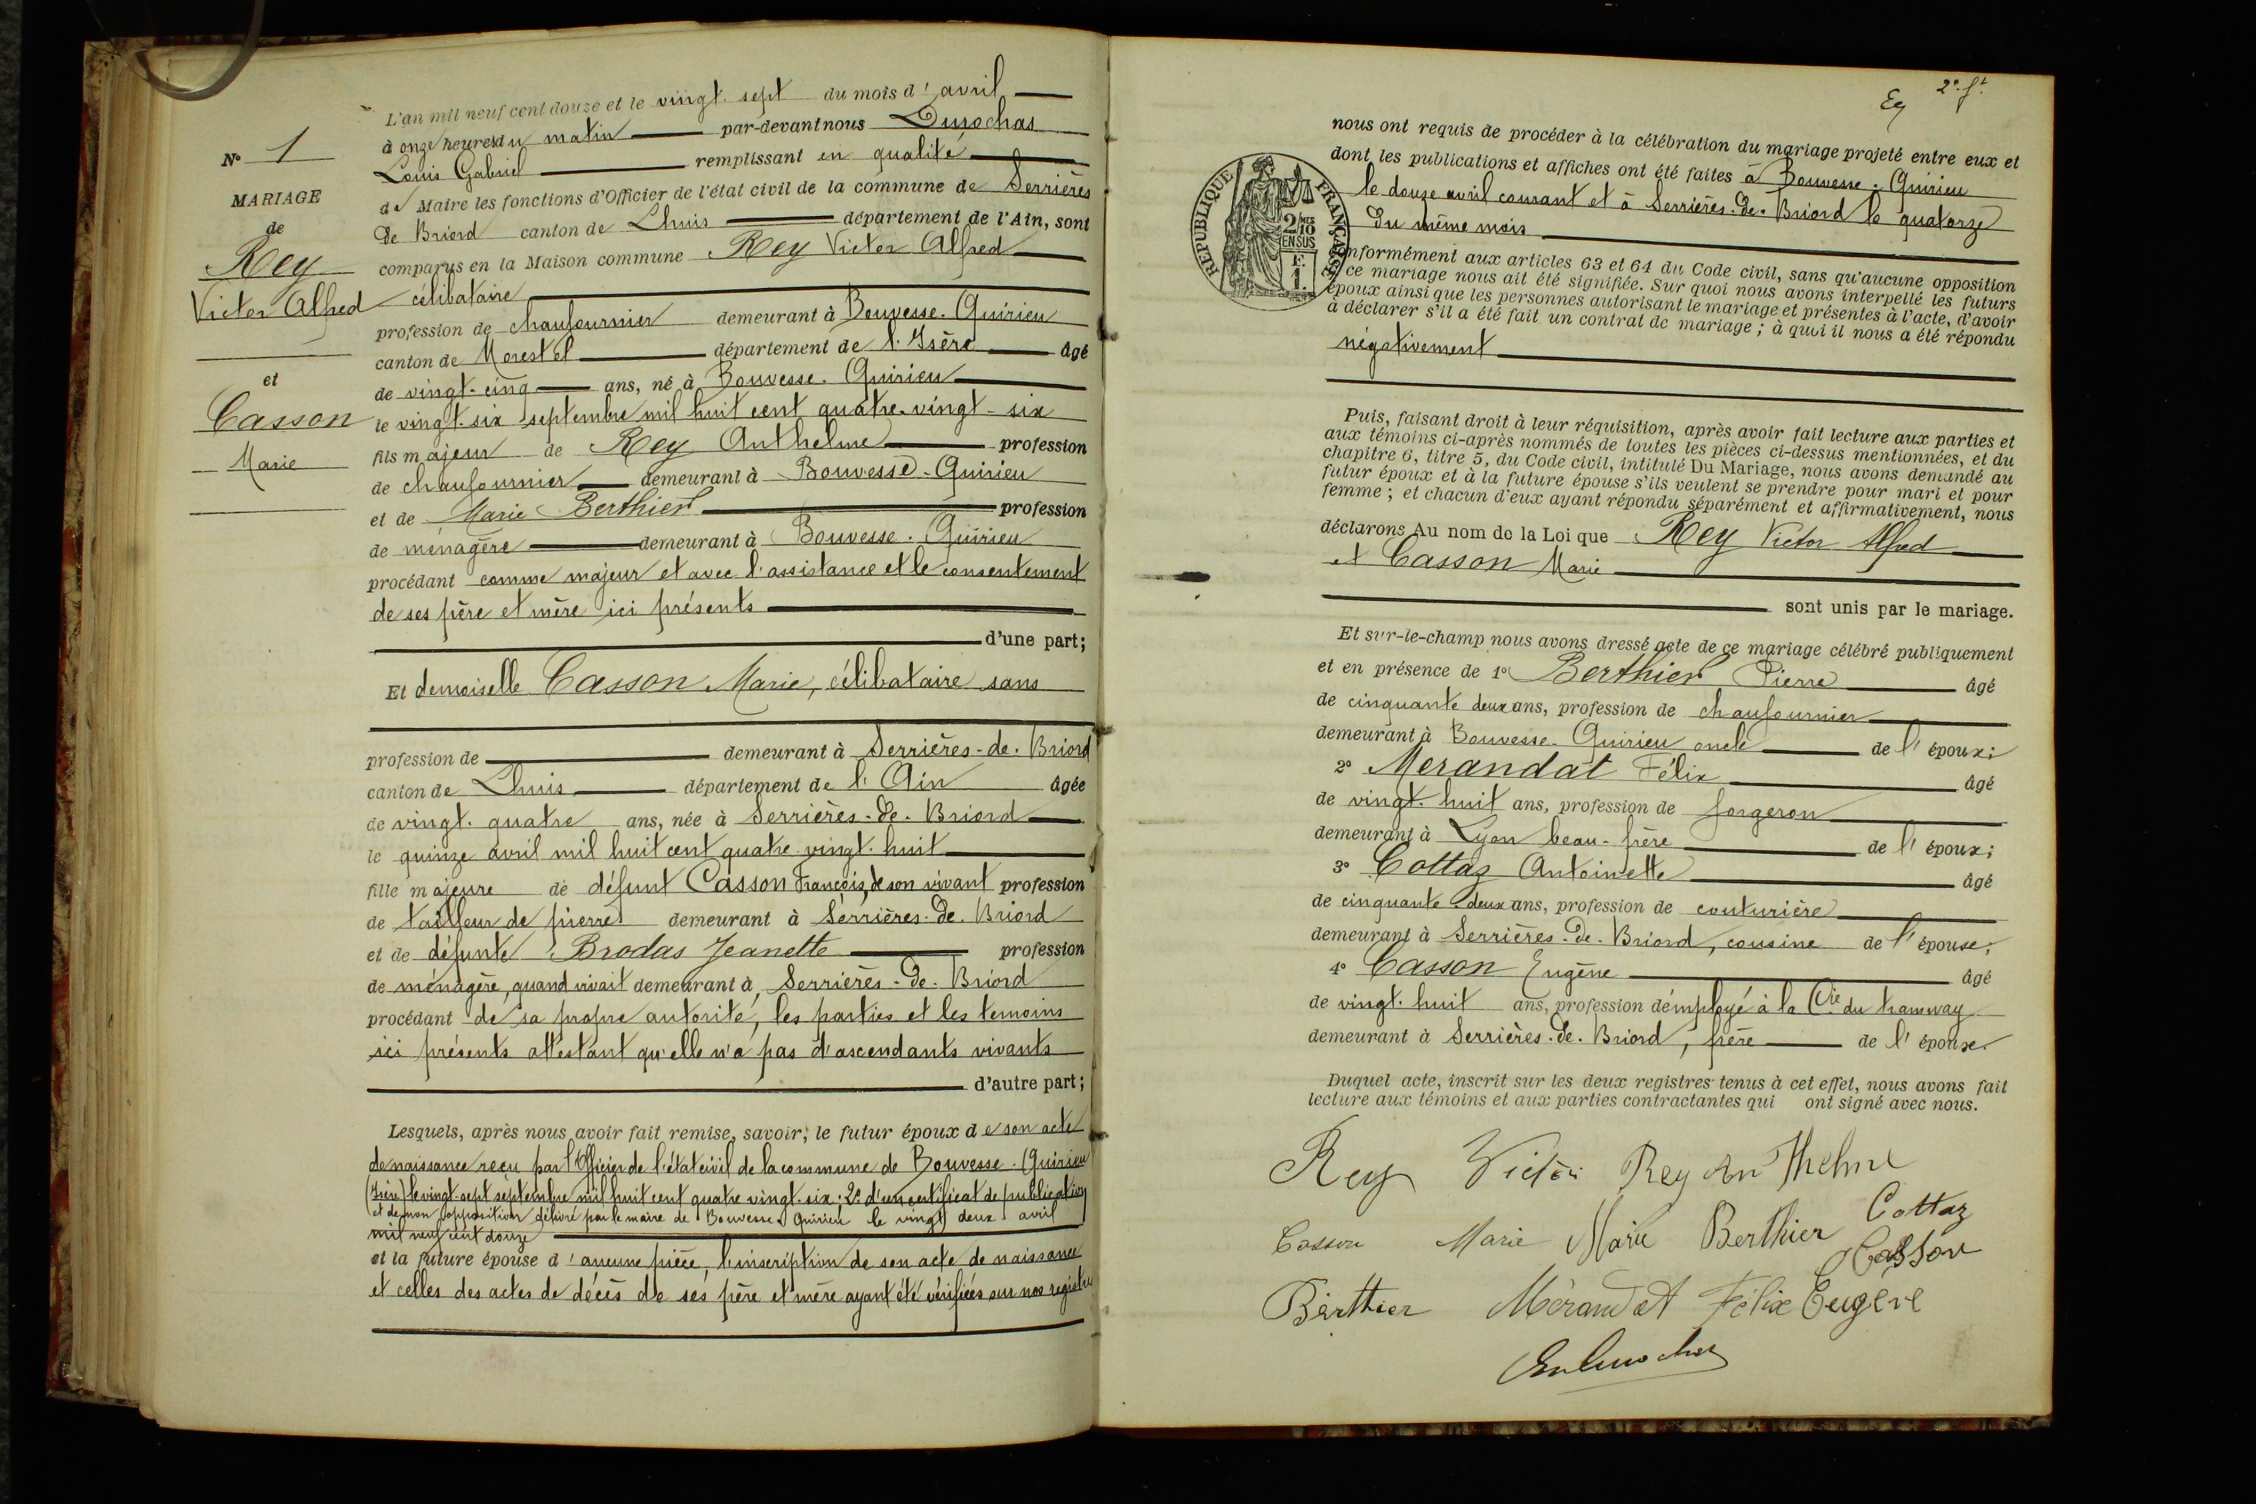 N° 1
MARIAGE
de
Rey
Victor Alfred
et
Casson
Marie
L'an mil neuf cent douze et le vingt-sept du mois d'avril
à onze heures du matin par-devant nous Durochas
Louis Gabriel remplissant en qualité
de Maire les fonctions d'Officier de l'état civil de la commune de Serrières
de Briord canton de Lhuis département de l'Ain, sont
comparus en la Maison commune Rey Victor Alfred
célibataire
profession de chaufournier demeurant à Bouvesse-Quirieu
canton de Morestel département de l'Isère âgé
de vingt-cinq ans, né à Bouvesse-Quirieu
le vingt-six septembre mil huit cent quatre-vingt-six
fils majeur de Rey Anthelme profession
de chaufournier demeurant à Bouvesse-Quirieu
et de Marie Berthier profession
de ménagère demeurant à Bouvesse-Quirieu
procédant comme majeur et avec l'assistance et le consentement
de ses père et mère ici présents
d'une part;
Et demoiselle Casson Marie, célibataire sans
profession de demeurant à Serrières-de-Briord
canton de Lhuis département de l'Ain âgée
de vingt-quatre ans, née à Serrières-de-Briord
le quinze avril mil huit cent quatre-vingt-huit
fille majeure de défunt Casson François, de son vivant profession
de tailleur de pierres demeurant à Serrières-de-Briord
et de défunte Brodas Jeanette profession
de ménagère, quand vivait demeurant à Serrières-de-Briord
procédant de sa propre autorité, les parties et les temoins
ici présents attestant qu'elle n'a pas d'ascendants vivants
d'autre part;
Lesquels, après nous avoir fait remise, savoir; le futur époux de son acte
de naissance reçu par l'Officier de l'état civil de la commune de Bouvesse-Quirieu
(Isère) le vingt-sept septembre mil huit cent quatre vingt-six; 2° d'un certificat de publication
et de non opposition délivré par le maire de Bouvesse-Quirieu le vingt deux avril
mil neuf cent douze
et la future épouse d'aucune pièce, l'inscription de son acte de naissance
et celles des actes de décès de ses père et mère ayant été vérifiées sur nos registres
2e ft
REPUBLIQUE FRANÇAISE
2/10 EN SUS
F. 1.
nous ont requis de procéder à la célébration du mariage projeté entre eux et
dont les publications et affiches ont été faites à Bouvesse-Quirieu
le douze avril courant et à Serrières-de-Briord le quatorze
du même mois
conformément aux articles 63 et 64 du Code civil, sans qu'aucune opposition
à ce mariage nous ait été signifiée. Sur quoi nous avons interpellé les futurs
époux ainsi que les personnes autorisant le mariage et présentes à l'acte, d'avoir
à déclarer s'il a été fait un contrat de mariage; à quoi il nous a été répondu
négativement
Puis, faisant droit à leur réquisition, après avoir fait lecture aux parties et
aux témoins ci-après nommés de toutes les pièces ci-dessus mentionnées, et du
chapitre 6, titre 5, du Code civil, intitulé Du Mariage, nous avons demandé au
futur époux et à la future épouse s'ils veulent se prendre pour mari et pour
femme; et chacun d'eux ayant répondu séparément et affirmativement, nous
déclarons Au nom de la Loi que Rey Victor Alfred
et Casson Marie
sont unis par le mariage.
Et sur-le-champ nous avons dressé acte de ce mariage célébré publiquement
et en présence de 1° Berthier Pierre âgé
de cinquante deux ans, profession de chaufournier
demeurant à Bouvesse-Quirieu oncle de l'époux;
2° Merandat Félix âgé
de vingt-huit ans, profession de forgeron
demeurant à Lyon beau-frère de l'époux;
3° Cottaz Antoinette âgé
de cinquante-deux ans, profession de couturière
demeurant à Serrières-de-Briord, cousine de l'épouse;
4° Casson Eugène âgé
de vingt-huit ans, profession d'employé à la Cie du tramway
demeurant à Serrières-de-Briord, frère de l'épouse.
Duquel acte, inscrit sur les deux registres tenus à cet effet, nous avons fait
lecture aux témoins et aux parties contractantes qui ont signé avec nous.
Rey Victor Rey Anthelme
Casson Marie Marie Berthier Cottaz
Casson
Berthier Mérandat Félix Eugène